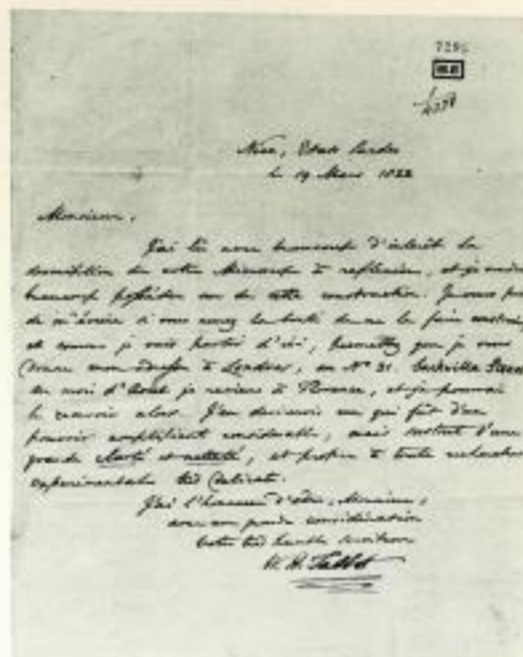 7295
Nice, Etats Sardes
le 19 Mars 1822
Monsieur,
J'ai lu avec beaucoup d'intérêt la
description de votre Microscope à reflexion, et je
beaucoup posséder un de cette construction. Je vous
de m'écrire si vous avez la bonté de me le faire
et comme je vais partir d'ici, permettez que je vous
donne mon adresse à Londres, au Nº 31. Sackville Street
au mois d'Août je reviens à Florence, et je pourrai
le recevoir alors. J'en desirerois un qui fût d'un
pouvoir amplifiant considerable, mais surtout d'une
grande clarté et netteté, et propre à toute recherche
experimentale très delicate.
J'ai l'honneur d'être, Monsieur,
avec une grande considération
votre très humble serviteur
W. H. Talbot